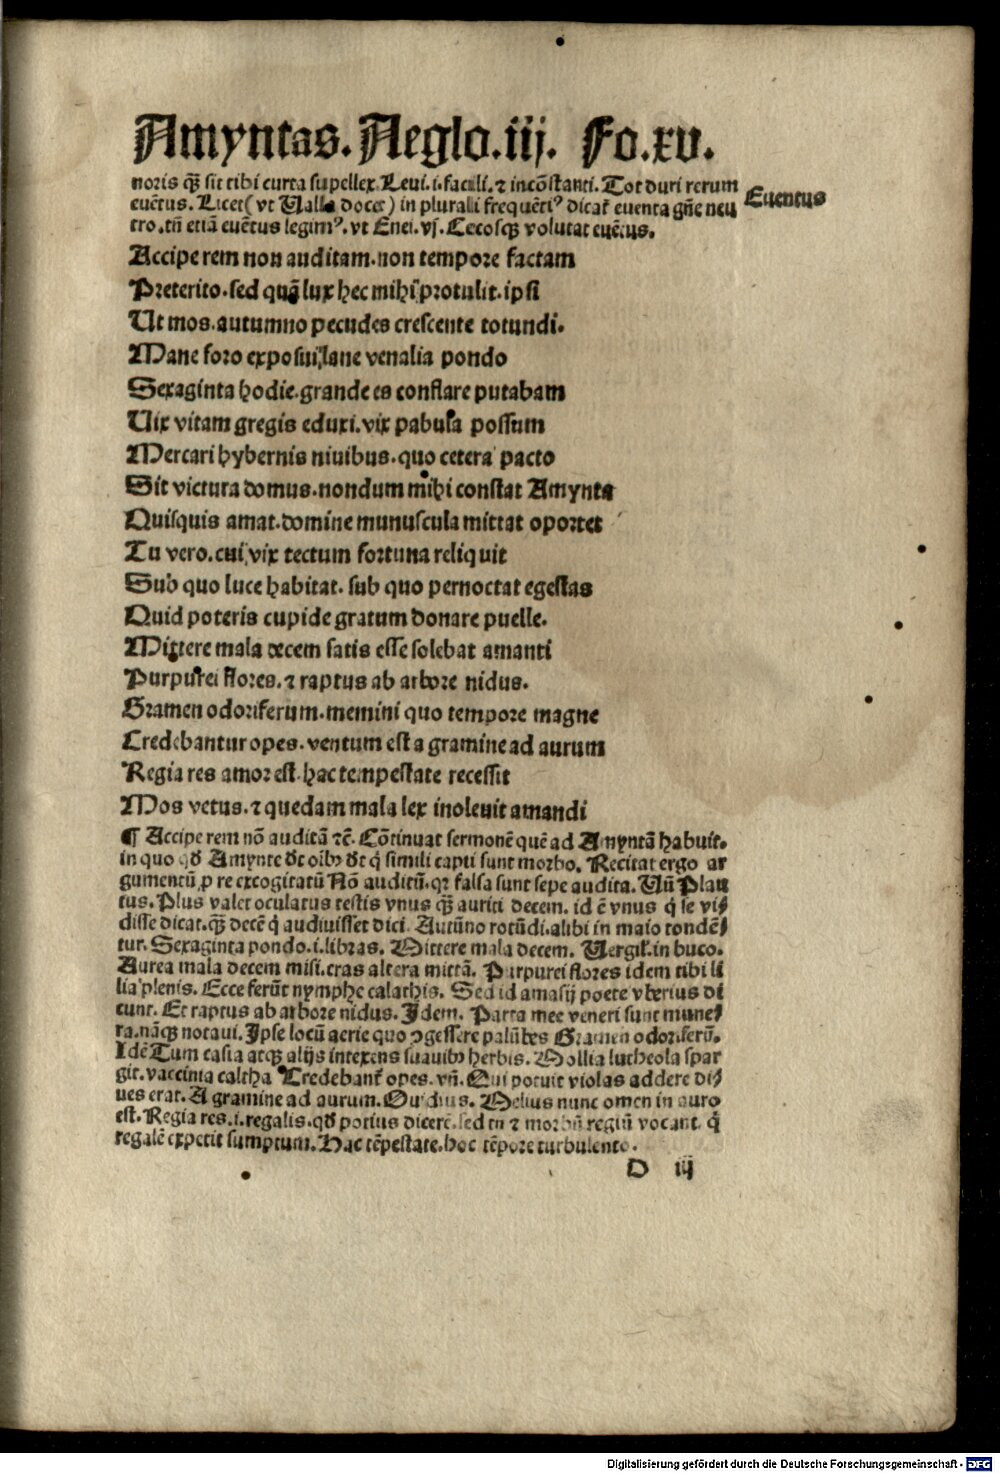 Amyntas. Aeglo.iij. Fo.xv.
noris q̃ȝ sit tibi curta supellex. Leui.i.facili.⁊ incõstanti. Tot duri rerum
euẽtus. Licet (vt Ualla docet) in plurali frequẽtiꝰ dicat᷑ euenta gñe neu
tro.tñ etiã euẽtus legimꝰ. vt Enei.vj. Cecosqȝ volutat euẽtus.
Euentus
Accipe rem non auditam.non tempore factam
Preterito.sed quã lux hec mihi protulit.ipsi
Ut mos.autumno pecudes crescente totundi.
Mane foro exposui,lane venalia pondo
Sexaginta hodie.grande es conflare putabam
Uix vitam gregis eduxi.vix pabula possum
Mercari hybernis niuibus.quo cetera pacto
Sit victura domus.nondum mihi constat Amynta
Quisquis amat.domine munuscula mittat oportet
Tu vero.cui,vix tectum fortuna reliquit
Sub quo luce habitat. sub quo pernoctat egestas
Quid poteris cupide gratum donare puelle.
Mittere mala decem satis esse solebat amanti
Purpurei flores.⁊ raptus ab arbore nidus.
Gramen odoriferum.memini quo tempore magne
Credebantur opes.ventum est a gramine ad aurum
Regia res amor est.hac tempestate recessit
Mos vetus.⁊ quedam mala lex inoleuit amandi
¶ Accipe rem nõ auditã ⁊c̃. Cõtinuat sermonẽ quẽ ad Amyntã habuit.
in quo qđ Amynte đt oibꝰ đt q̃ simili capti sunt morbo. Recitat ergo ar
gumentũ ꝓ re excogitatũ Nõ auditũ.qꝛ falsa sunt sepe audita. Uñ Plau
tus. Plus valet oculatus testis vnus q̃ȝ auriti decem. id ẽ vnus q̃ se vi⸗
disse dicat.q̃ȝ decẽ q̃ audiuisset dici. Autũno totũdi.alibi in maio tondẽ⸗
tur. Sexaginta pondo.i.libras. Mittere mala decem. Uergil.in buco.
Aurea mala decem misi.cras altera mittã. Purpurei flores idem tibi li
lia plenis. Ecce ferũt nymphe calathis. Sed id amasij poete vberius di
cunt. Et raptus ab arbore nidus. Idem. Parta mee veneri sunt mune⸗
ra.nãqȝ notaui. Ipse locũ aerie quo ꝯgessere palũbes Gramen odoriferũ.
Idẽ Tum casia atqȝ alijs intexens suauibꝰ herbis. Mollia lutheola spar
git.vaccinia caltha Credebant᷑ opes. vñ. Qui potuit violas addere di⸗
ues erat. A gramine ad aurum. Ouidius. Melius nunc omen in auro
est. Regia res.i.regalis.qđ potius dicere.sed tñ ⁊ morbũ regiũ vocant. q̃
regalẽ expetit sumptum. Hac tẽpestate.hoc tẽpore turbulento.
D iij
Digitalisierung gefördert durch die Deutsche Forschungsgemeinschaft - DFG